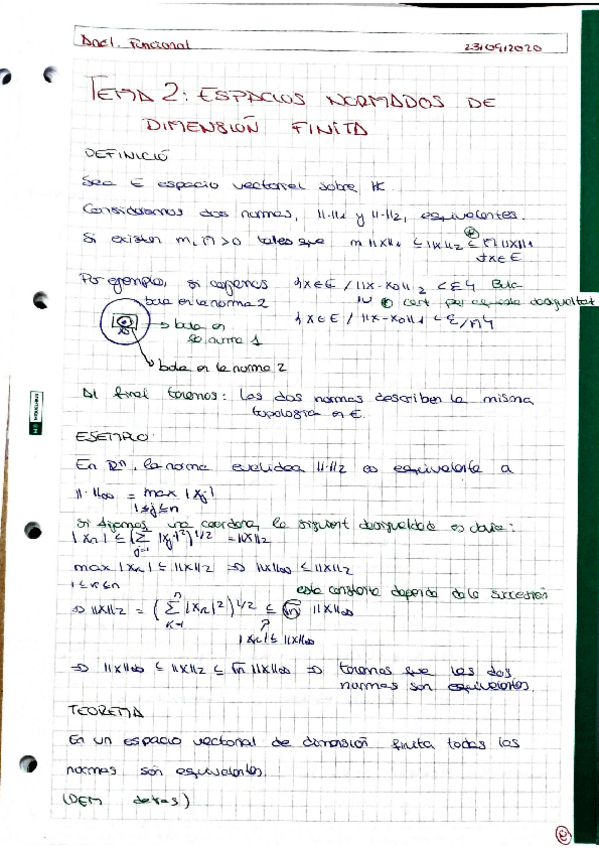 Anal. Funcional 23/09/2020
TEMA 2: ESPACIOS NORMADOS DE
DIMENSIÓN FINITA
DEFINICIÓ
Sea E espacio vectorial sobre K.
Consideramos dos normas, ||·||1 y ||·||2, equivalentes.
Si existen m, M>0 tales que m||x||1 ≤ ||x||2 ≤ M||x||1
∀x∈E
Por ejemplo, si cogemos {x∈E / ||x-x0||2 < ε} Bola
bola en la norma 2
{x∈E / ||x-x0||1 < ε/M} cert per aquesta desigualtat
bola en
la norma 1
bola en la norma 2
Al final tenemos: Las dos normas describen la misma
topologia en E.
EJEMPLO:
En Rⁿ, la norma euclídea ||·||2 es equivalente a
||·||∞ = max |xj|
1≤j≤n
Si fijamos una coordena, la siguient desigualdade es obvia:
|xn| ≤ (∑ |xj|²)^1/2 = ||x||2
j=1
max |xn| ≤ ||x||2 ⇒ ||x||∞ ≤ ||x||2
1≤n≤n
esta constante depende de la sucesión
⇒ ||x||2 = (∑ |xn|²)^1/2 ≤ √n ||x||∞
n
K=1
|xn| ≤ ||x||∞
⇒ ||x||∞ ≤ ||x||2 ≤ √n ||x||∞ ⇒ tenemos que las dos
normas son equivalentes.
TEOREMA
En un espacio vectorial de dimensión finita todas las
normas son equivalentes.
(DEM detras)